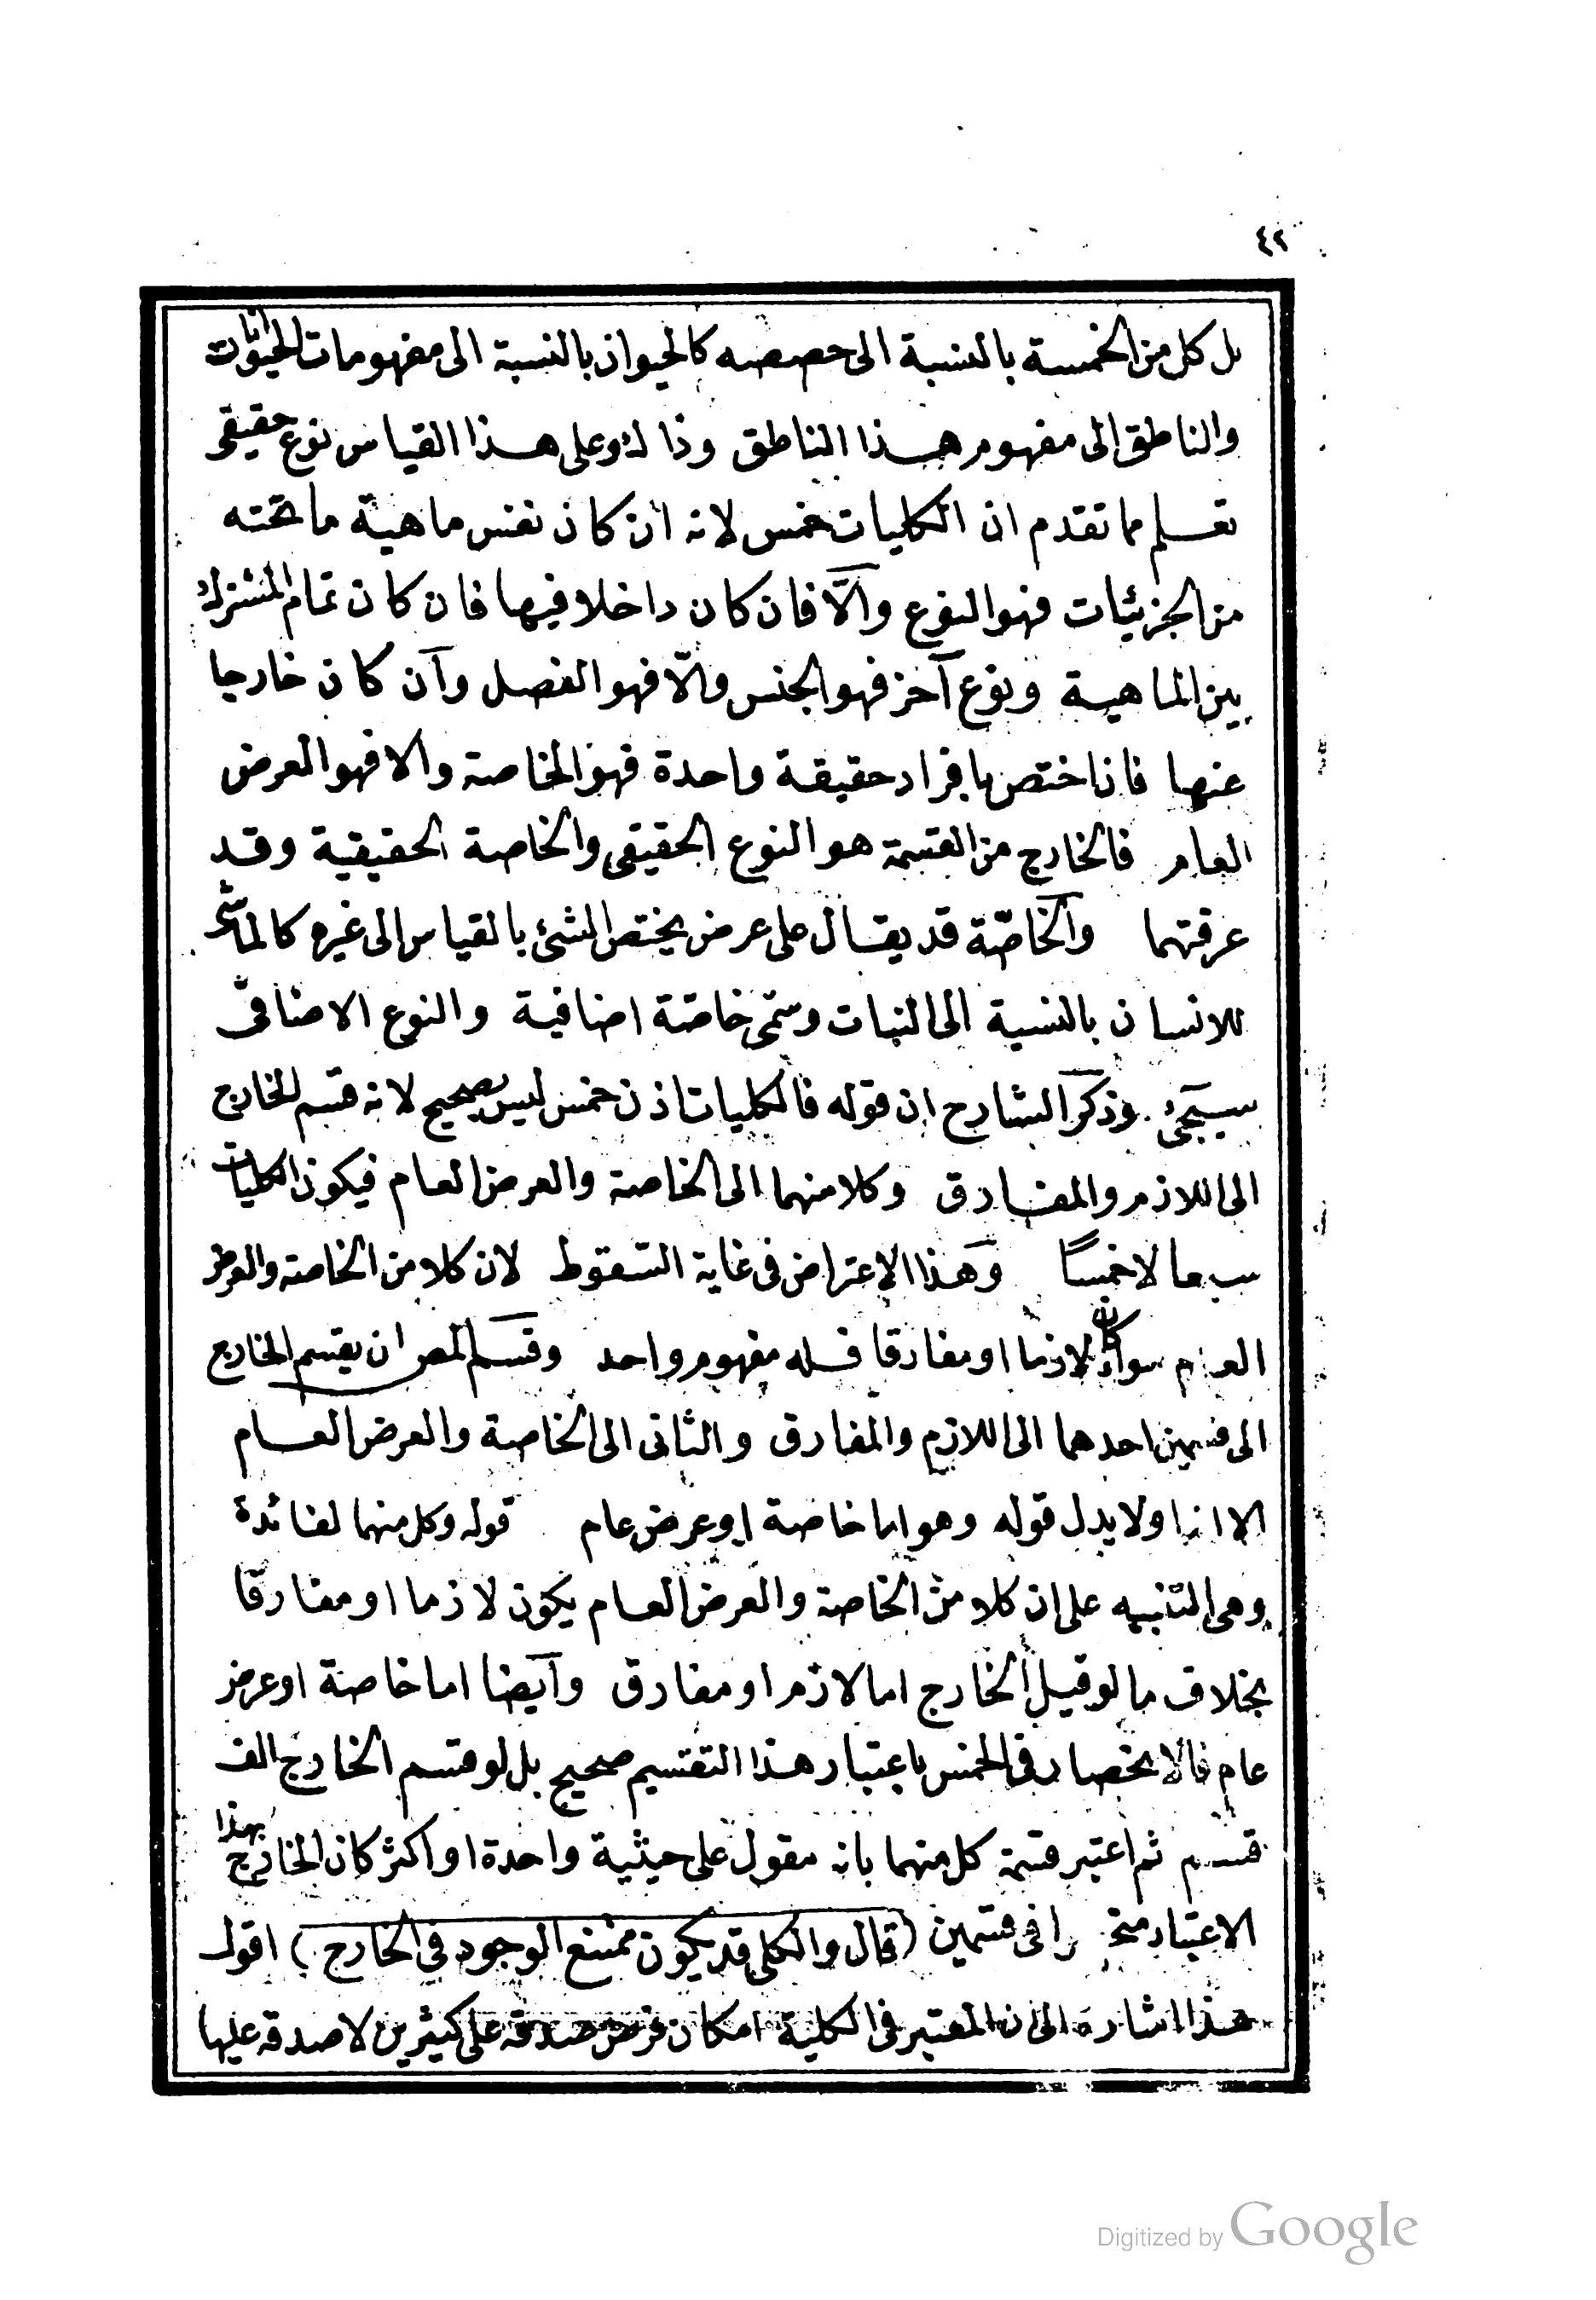 ٤٢
بل كل من الخمسة بالنسبة الى حصصه كالحيوان بالنسبة الى مفهومات الحيوانات
والناطق الى مفهوم هذا الناطق وذاك وعلى هذا القياس نوع حقيقى
تعلم مما تقدم ان الكليات خمس لانه ان كان نفس ماهية ما تحته
من الجزئيات فهو النوع والّا فان كان داخلا فيها فان كان تمام المشترك
بين الماهية ونوع آخر فهو الجنس والّا فهو الفصل وان كان خارجا
عنها فان اختص بافراد حقيقة واحدة فهو الخاصة والا فهو العرض
العام فالخارج من القسمة هو النوع الحقيقى والخاصة الحقيقية وقد
عرفتهما والخاصّة قد يقال على عرض يختص الشئ بالقياس الى غيره كالماشى
للانسان بالنسبة الى النبات وسمّى خاصّة اضافية والنوع الاضافى
سيجئ وذكر الشارح ان قوله فالكليات اذن خمس ليس بصحيح لانه قسم الخارج
الى اللازم والمفارق وكلا منهما الى الخاصة والعرض العام فيكون الكليات
سبعا لا خمسًا وهذا الاعتراض فى غاية السّقوط لان كلا من الخاصة والعرض
العام سواء كان لازما او مفارقا فله مفهوم واحد وقسم المصر ان يقسم الخارج
الى قسمين احدهما الى اللازم والمفارق والثانى الى الخاصة والعرض العام
الا اولا يدل قوله وهو اما خاصة او عرض عام قوله وكل منهما لفائدة
وهى التنبيه على ان كلا من الخاصة والعرض العام يكون لازما او مفارقا
بخلاف ما لو قيل الخارج اما لازم او مفارق وايضا اما خاصة او عرض
عام فالانحصار فى الخمس باعتبار هذا التقسيم صحيح بل لو قسم الخارج الف
قسم ثم اعتبر قسمة كل منهما بانه مقول على حيثية واحدة او اكثر كان الخارج بهذا
الاعتبار را فى قسمين (قال والكلى قد يكون ممتنع الوجود فى الخارج) اقول
هذا اشارة الى ان المعتبر فى الكلية امكان فرض صدقه على كثيرين لا صدقه عليها
Digitized by Google